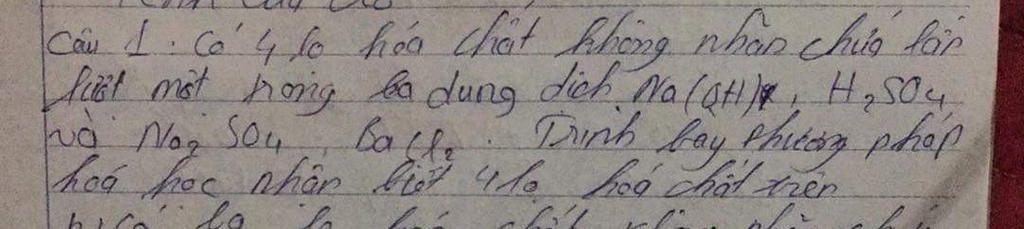 Câu 1. Có 4 lọ hóa chất không nhãn chứa lần
lượt một trong ba dung dịch Na(OH), H₂SO₄
và Na₂SO₄, BaCl₂. Trình bày phương pháp
hoá học nhận biết 4 lọ hoá chất trên